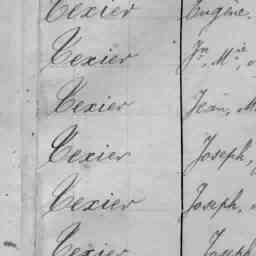 Texier Eugène.
Texier Jn. Mie.
Texier Jean, M
Texier Joseph,
Texier Joseph,
Texier Joseph